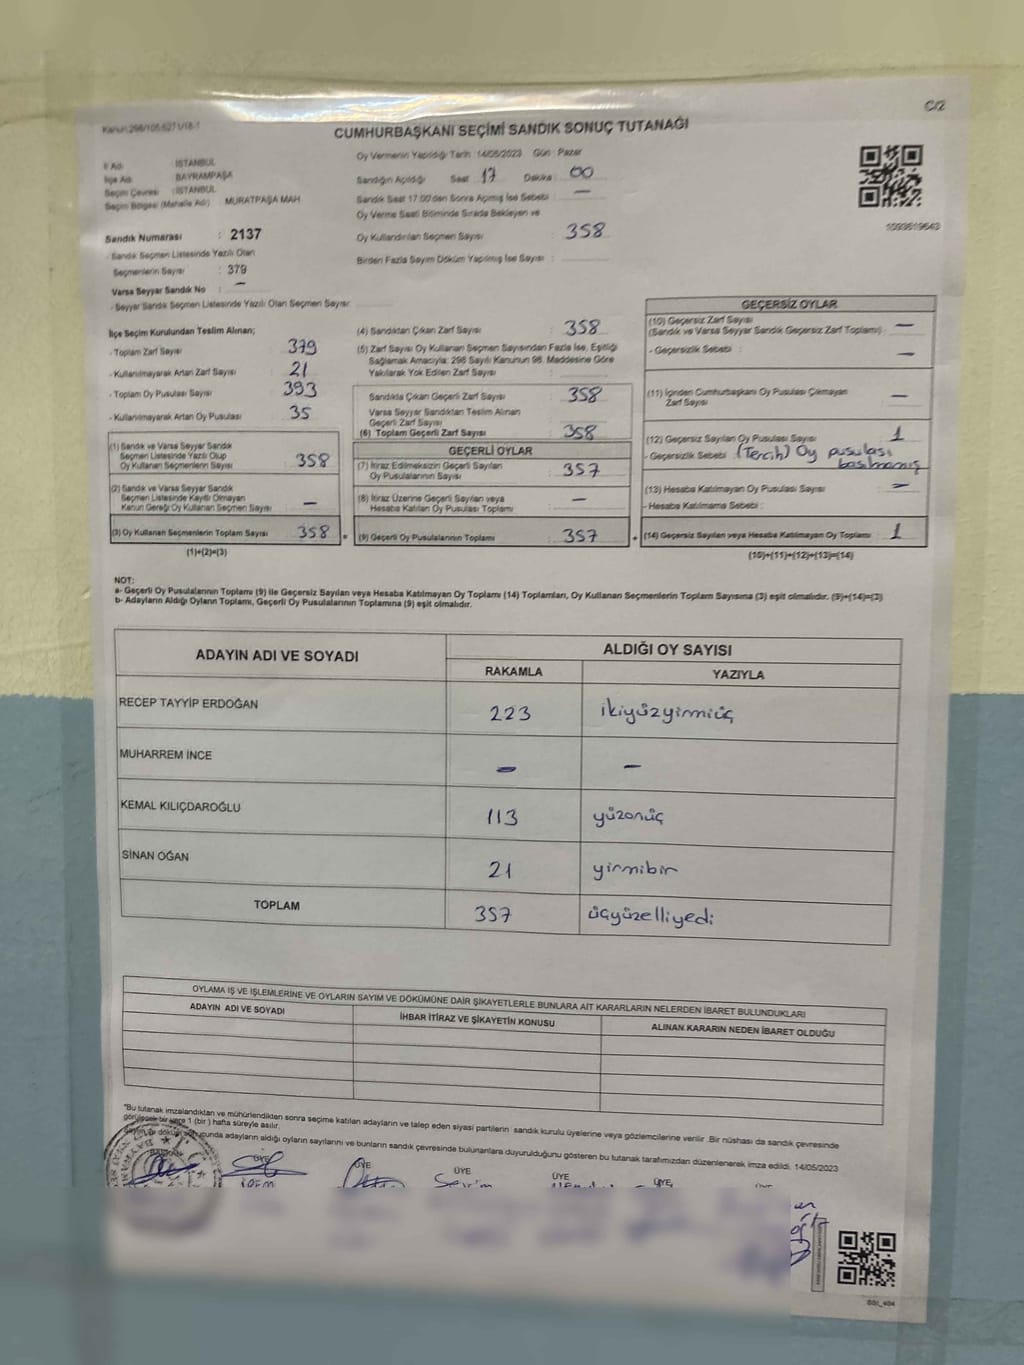 C/2
CUMHURBAŞKANI SEÇİMİ SANDIK SONUÇ TUTANAĞI
İl Adı : İSTANBUL
İlçe Adı : BAYRAMPAŞA
Seçim Çevresi : İSTANBUL
Seçim Bölgesi (Mahalle Adı) MURATPAŞA MAH
Sandık Numarası : 2137
- Sandık Seçmen Listesinde Yazılı Olan
Seçmenlerin Sayısı : 379
Varsa Seyyar Sandık No : —
- Seyyar Sandık Seçmen Listesinde Yazılı Olan Seçmen Sayısı
Oy Vermenin Yapıldığı Tarih : 14/05/2023 Gün : Pazar
Sandığın Açıldığı Saat 17 Dakika : 00
Sandık Saat 17:00'den Sonra Açılmış İse Sebebi : —
Oy Verme Saati Bitiminde Sırada Bekleyen ve
Oy Kullandırılan Seçmen Sayısı : 358
Birden Fazla Sayım Döküm Yapılmış İse Sayısı :
1093619643
İlçe Seçim Kurulundan Teslim Alınan;
- Toplam Zarf Sayısı : 379
- Kullanılmayarak Artan Zarf Sayısı : 21
- Toplam Oy Pusulası Sayısı : 393
- Kullanılmayarak Artan Oy Pusulası : 35
(1) Sandık ve Varsa Seyyar Sandık
Seçmen Listesinde Yazılı Olup
Oy Kullanan Seçmenlerin Sayısı : 358
(2) Sandık ve Varsa Seyyar Sandık
Seçmen Listesinde Kayıtlı Olmayan
Kanun Gereği Oy Kullanan Seçmen Sayısı : —
(3) Oy Kullanan Seçmenlerin Toplam Sayısı : 358
(1)+(2)=(3)
(4) Sandıktan Çıkan Zarf Sayısı : 358
(5) Zarf Sayısı Oy Kullanan Seçmen Sayısından Fazla İse, Eşitliği
Sağlamak Amacıyla; 298 Sayılı Kanunun 98. Maddesine Göre
Yakılarak Yok Edilen Zarf Sayısı :
Sandıkta Çıkan Geçerli Zarf Sayısı : 358
Varsa Seyyar Sandıktan Teslim Alınan
Geçerli Zarf Sayısı :
(6) Toplam Geçerli Zarf Sayısı : 358
GEÇERLİ OYLAR
(7) İtiraz Edilmeksizin Geçerli Sayılan
Oy Pusulalarının Sayısı : 357
(8) İtiraz Üzerine Geçerli Sayılan veya
Hesaba Katılan Oy Pusulası Toplamı : —
(9) Geçerli Oy Pusulalarının Toplamı : 357
GEÇERSİZ OYLAR
(10) Geçersiz Zarf Sayısı
(Sandık ve Varsa Seyyar Sandık Geçersiz Zarf Toplamı) : —
- Geçersizlik Sebebi : —
(11) İçinden Cumhurbaşkanı Oy Pusulası Çıkmayan
Zarf Sayısı : —
(12) Geçersiz Sayılan Oy Pusulası Sayısı : 1
- Geçersizlik Sebebi : (Tercih) Oy pusulası
basılmamış
(13) Hesaba Katılmayan Oy Pusulası Sayısı : —
- Hesaba Katılmama Sebebi :
(14) Geçersiz Sayılan veya Hesaba Katılmayan Oy Toplamı : 1
(10)+(11)+(12)+(13)=(14)
NOT:
a- Geçerli Oy Pusulalarının Toplamı (9) ile Geçersiz Sayılan veya Hesaba Katılmayan Oy Toplamı (14) Toplamları, Oy Kullanan Seçmenlerin Toplam Sayısına (3) eşit olmalıdır. (9)+(14)=(3)
b- Adayların Aldığı Oyların Toplamı, Geçerli Oy Pusulalarının Toplamına (9) eşit olmalıdır.
ADAYIN ADI VE SOYADI
ALDIĞI OY SAYISI
RAKAMLA YAZIYLA
RECEP TAYYİP ERDOĞAN 223 ikiyüzyirmiüç
MUHARREM İNCE — —
KEMAL KILIÇDAROĞLU 113 yüzonüç
SİNAN OĞAN 21 yirmibir
TOPLAM 357 üçyüzelliyedi
OYLAMA İŞ VE İŞLEMLERİNE VE OYLARIN SAYIM VE DÖKÜMÜNE DAİR ŞİKAYETLERLE BUNLARA AİT KARARLARIN NELERDEN İBARET BULUNDUKLARI
ADAYIN ADI VE SOYADI İHBAR İTİRAZ VE ŞİKAYETİN KONUSU ALINAN KARARIN NEDEN İBARET OLDUĞU
"Bu tutanak imzalandıktan ve mühürlendikten sonra seçime katılan adayların ve talep eden siyasi partilerin sandık kurulu üyelerine veya gözlemcilerine verilir. Bir nüshası da sandık çevresinde
görülecek bir yere 1 (bir) hafta süreyle asılır.
adayların aldığı oyların sayılarını ve bunların sandık çevresinde bulunanlara duyurulduğunu gösteren bu tutanak tarafımızdan düzenlenerek imza edildi. 14/05/2023
ÜYE ÜYE ÜYE ÜYE ÜYE ÜYE